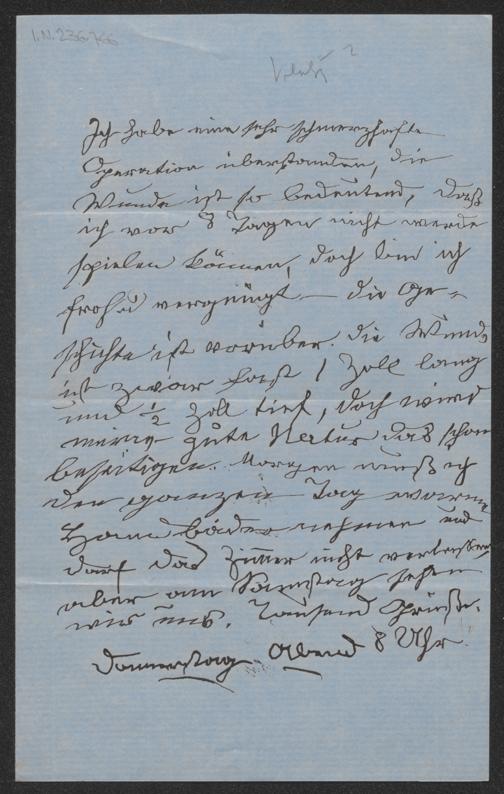 I.N. 236.766
Ich habe eine sehr schmerzhafte
Operation überstanden, die
Wunde ist so bedeutend, daß
ich vor 8 Tagen nicht werde
spielen können, doch bin ich
froh u vergnügt – die Ge-
schichte ist vorüber. die Wunde
ist zwar fast 1 Zoll lang
und ½ Zoll tief, doch wird
meine gute Natur das schon
beseitigen. Morgen muß ich
den ganzen Tag warme
Handbäder nehmen und
darf das Zimmer nicht verlassen,
aber am Samstag sehen
wir uns. Tausend Grüße.
Donnerstag Abend 8 Uhr.